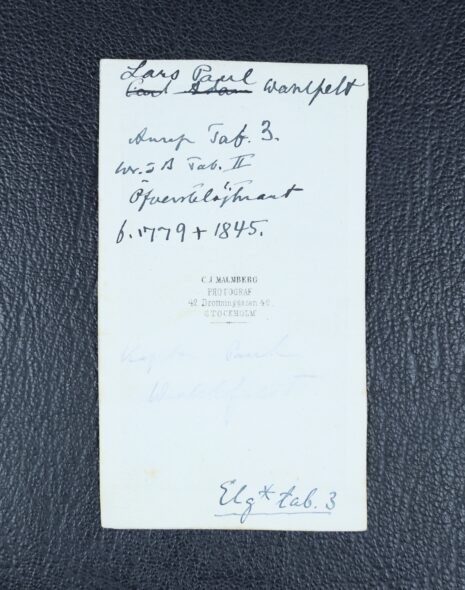 Lars Paul
Carl Adam Wahlfelt
Anrep Tab. 3.
Tab. II
Öfverstelöjtnant
f. 1779 + 1845.
C. J. MALMBERG
FOTOGRAF
42 Drottninggatan 42
STOCKHOLM
Elg* tab. 3